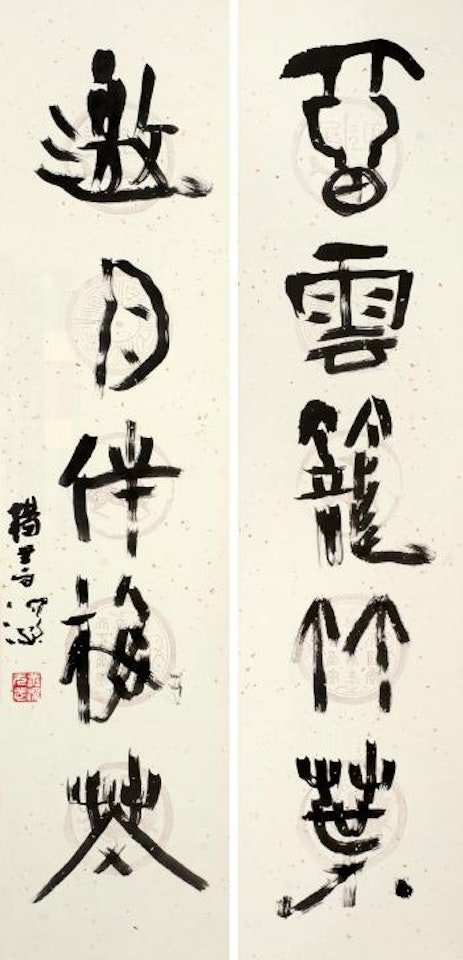 雲籠竹葉
邀月伴梅花
楊善深